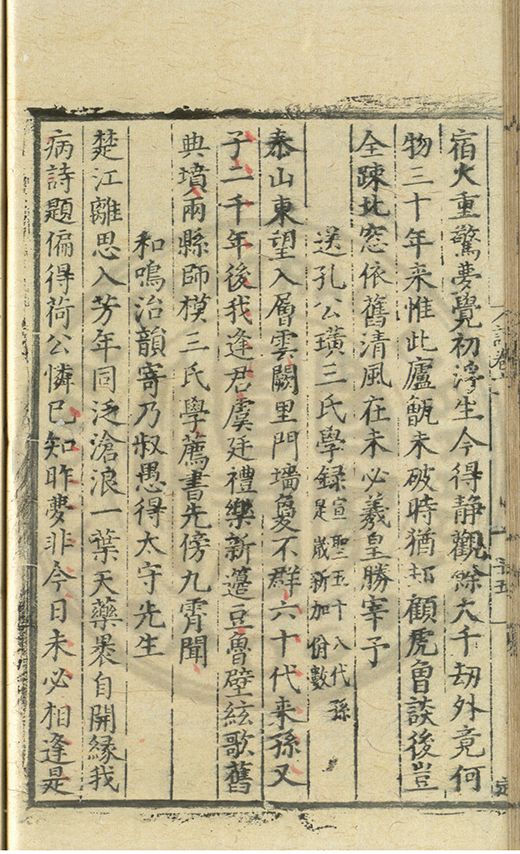 宿火重驚夢覺初浮生今得静觀餘大千刼外竟何
物三十年来惟此廬甑未破時猶顧虎魯談後豈
全踈北窓依舊清風在未必羲皇勝宰予
送孔公璜三氏學録宣聖五十八代孫是歲新加份數
泰山東望入層雲闕里門墻夐不群六十代来孫又
子二千年後我逢君虞廷禮樂新籩豆魯壁絃歌舊
典墳兩縣師模三氏學薦書先傍九霄聞
和鳴治韻寄乃叔愚得太守先生
楚江離思入芳年同泛滄浪一葉天藥褁自開緣我
病詩題偏得荷公憐已知昨夢非今日未必相逢是